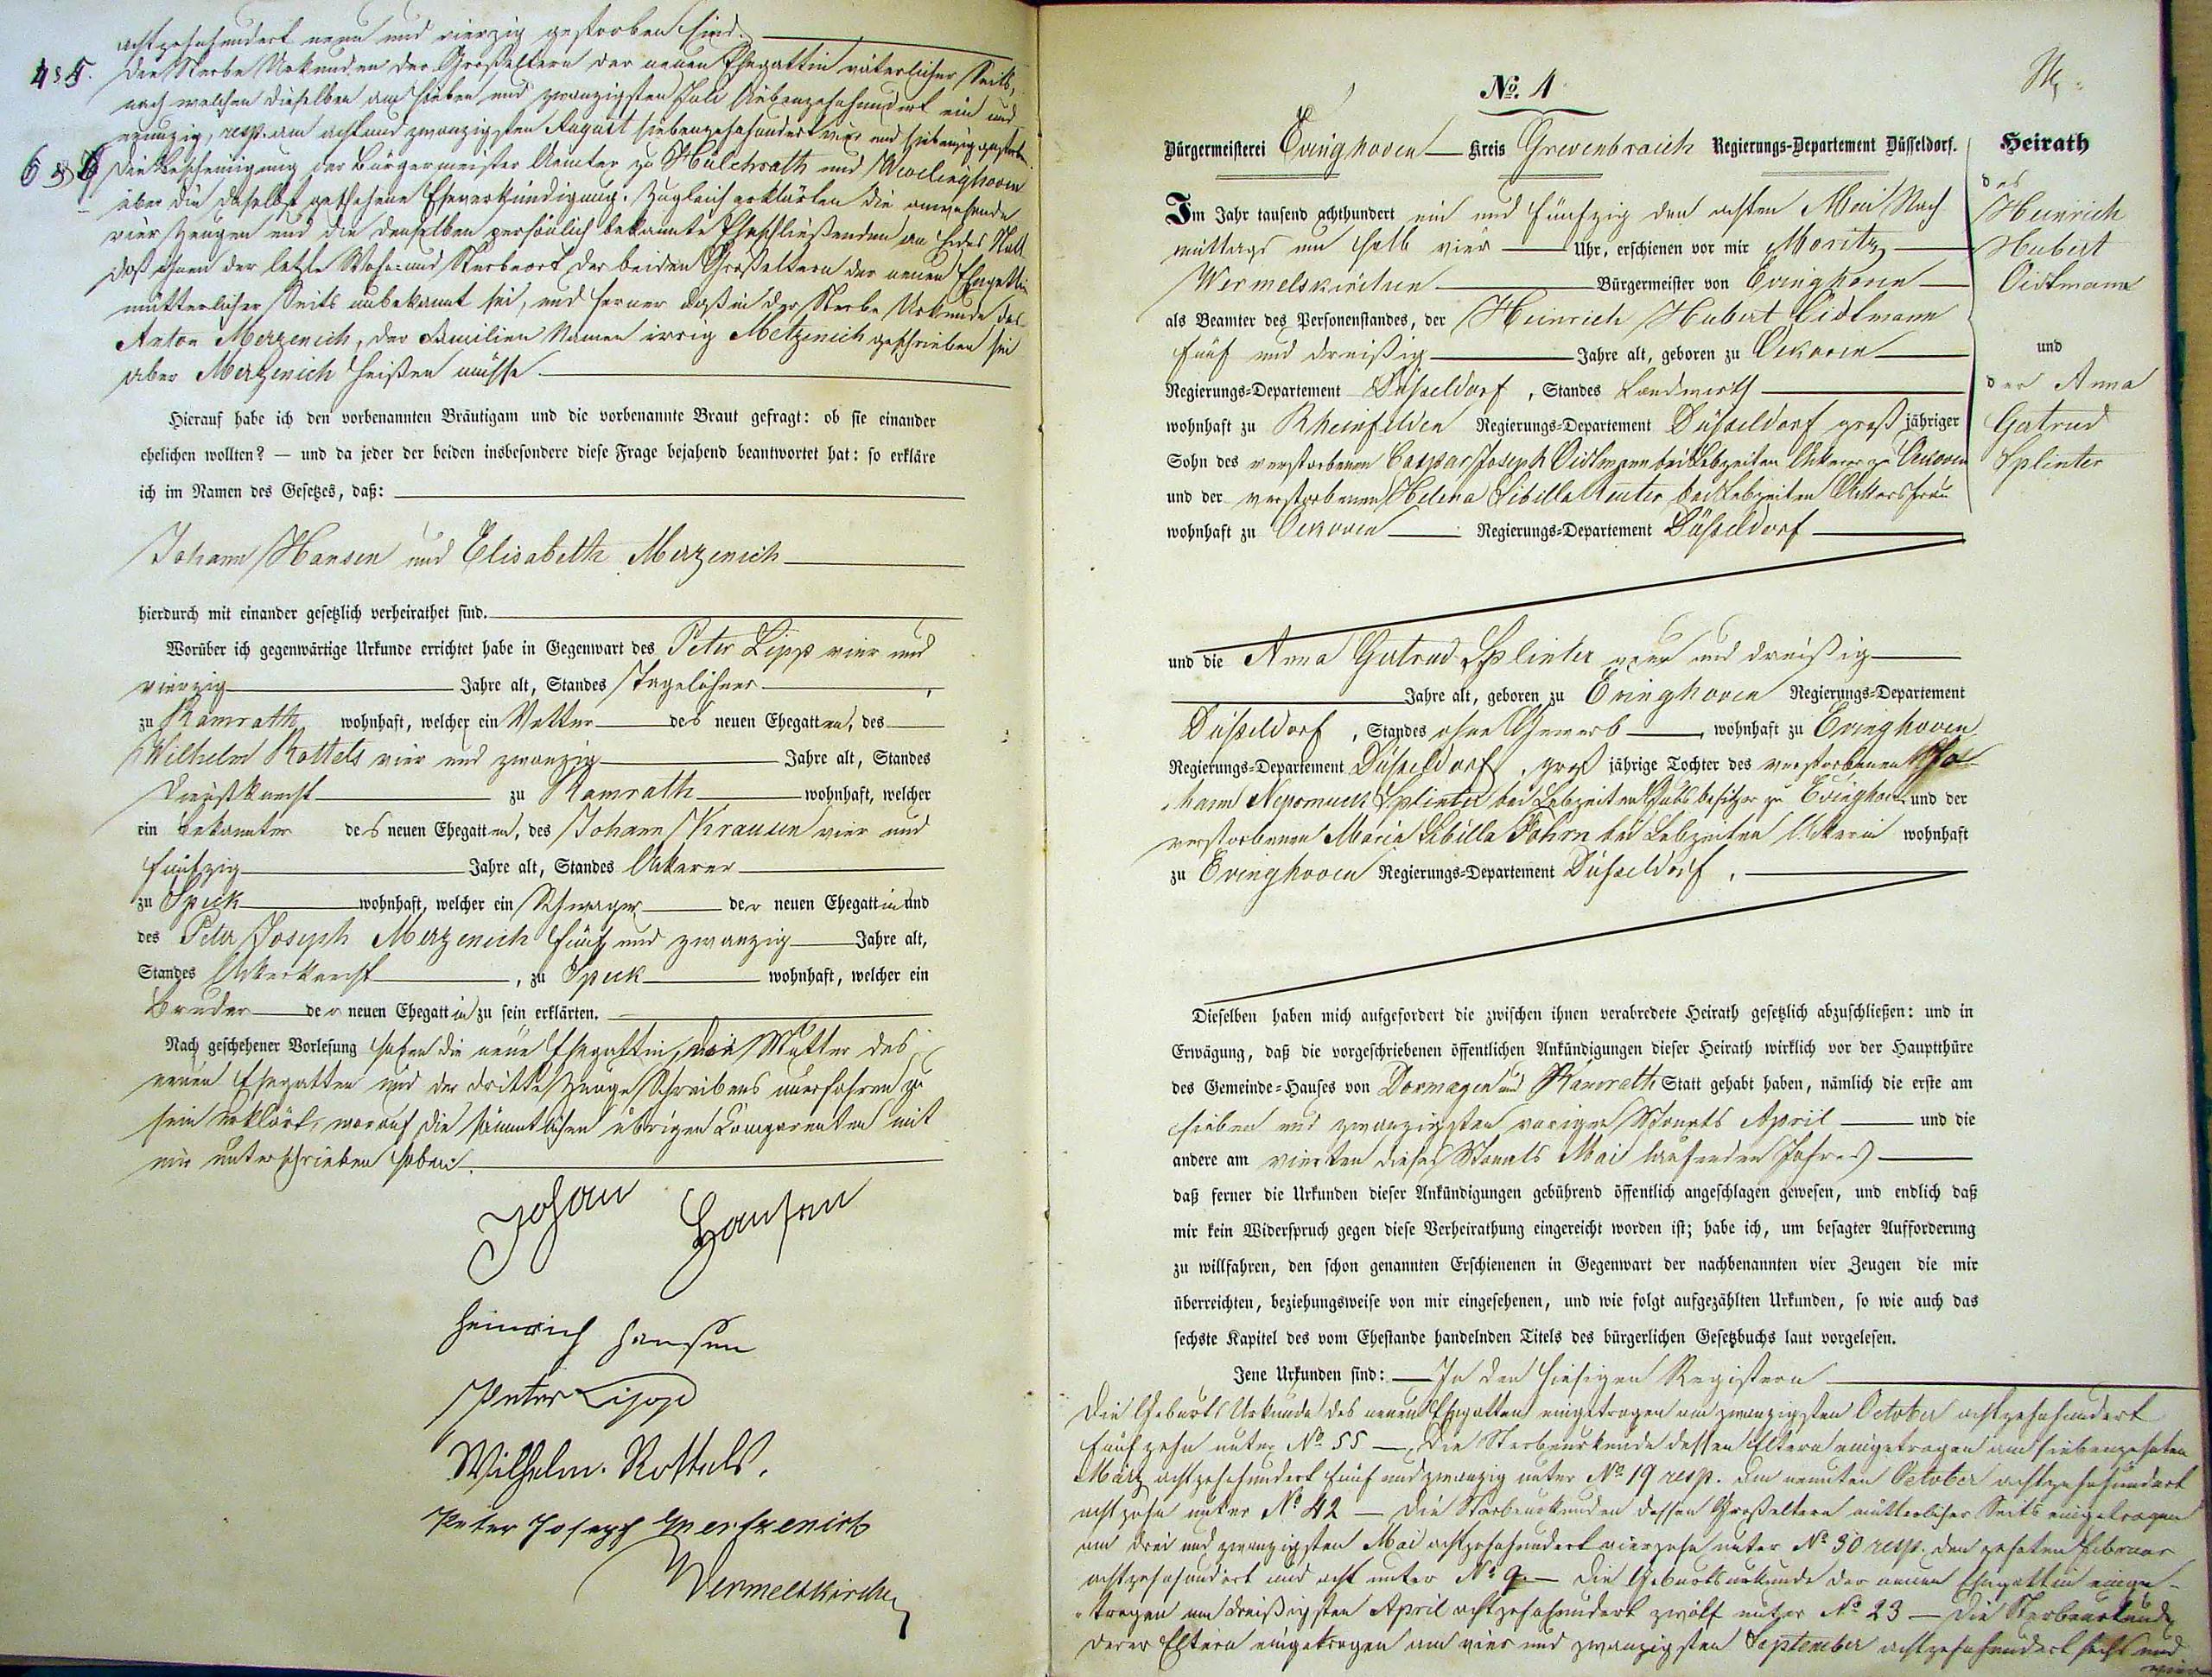 achtzehnhundert neun und vierzig gestorben sind.
4 & 5. Die Sterbe Urkunden der Großeltern der neuen Ehegattin väterlicher Seits,
nach welchen dieselben am sieben und zwanzigsten Juli siebenzehnhundert ein und
neunzig, resp. am acht und zwanzigsten August siebenzehnhundert vier und siebenzig gestorben
6 & 7 Die Bescheinigung der Bürgermeister Aemter zu Hülchrath und Wevelinghoven
über die daselbst geschehene Eheverkündigung. Zugleich erklärten die anwesende
vier Zeugen und die denselben persönlich bekannte Eheschließenden an Eides Statt
daß ihnen der letzte Wohn- und Sterbeort der beiden Großeltern der neuen Ehegattin
mütterlicher Seits unbekannt sei, und ferner daß in der Sterbe Urkunde des
Anton Merzenich, der Familien Namen irrig Metzenich geschrieben sei
aber Merzenich heißen müsse.
Hierauf habe ich den vorbenannten Bräutigam und die vorbenannte Braut gefragt: ob sie einander
ehelichen wollten? — und da jeder der beiden insbesondere diese Frage bejahend beantwortet hat: so erkläre
ich im Namen des Gesetzes, daß:
Johann Hansen und Elisabeth Merzenich
hierdurch mit einander gesetzlich verheirathet sind.
Worüber ich gegenwärtige Urkunde errichtet habe in Gegenwart des Peter Lipp vier und
vierzig Jahre alt, Standes Tagelöhner,
zu Ramrath wohnhaft, welcher ein Vetter des neuen Ehegatten, des
Wilhelm Rottels vier und zwanzig Jahre alt, Standes
Dienstknecht zu Ramrath wohnhaft, welcher
ein Bekannter des neuen Ehegatten, des Johann Krausen vier und
fünfzig Jahre alt, Standes Ackerer
zu Speck wohnhaft, welcher ein Schwager der neuen Ehegattin und
des Peter Joseph Merzenich fünf und zwanzig Jahre alt,
Standes Ackerknecht, zu Speck wohnhaft, welcher ein
Bruder der neuen Ehegattin zu sein erklärten.
Nach geschehener Vorlesung haben die neue Ehegattin, die Mutter des
neuen Ehegatten und der dritte Zeuge Schreibens unerfahren zu
sein erklärt, worauf die sämmtlichen übrigen Comparenten mit
mir unterschrieben haben.
Johan Hansen
Heinrich Hansen
Peter Lipp
Wilhelm Rottels.
Peter Joseph Mertzenich
Wermelskirchen
No. 4
Bürgermeisterei Evinghoven Kreis Grevenbroich Regierungs-Departement Düsseldorf.
Im Jahr tausend achthundert ein und fünfzig den achten Mai Nach
mittags um halb vier Uhr, erschienen vor mir Moritz
Wermelskirchen Bürgermeister von Evinghoven
als Beamter des Personenstandes, der Heinrich Hubert Oidtmann
fünf und dreißig Jahre alt, geboren zu Oekoven
Regierungs-Departement Düsseldorf, Standes Landwirth
wohnhaft zu Rheinfelden Regierungs-Departement Düsseldorf groß jähriger
Sohn des verstorbenen Caspar Joseph Oidtmann bei Lebzeiten Ackerer zu Oekoven
und der verstorbenen Helena Sibilla Reuter bei Lebzeiten Ackersfrau
wohnhaft zu Oekoven Regierungs-Departement Düsseldorf
und die Anna Gertrud Splinter neun und dreißig
Jahre alt, geboren zu Evinghoven Regierungs-Departement
Düsseldorf, Standes ohne Gewerb, wohnhaft zu Evinghoven
Regierungs-Departement Düsseldorf, groß jährige Tochter des verstorbenen Jo-
hann Nepomuck Splinter bei Lebzeiten Gutsbesitzer zu Evinghoven und der
verstorbenen Maria Sibilla Dahm bei Lebzeiten Ackerin wohnhaft
zu Evinghoven Regierungs-Departement Düsseldorf,
Dieselben haben mich aufgefordert die zwischen ihnen verabredete Heirath gesetzlich abzuschließen: und in
Erwägung, daß die vorgeschriebenen öffentlichen Ankündigungen dieser Heirath wirklich vor der Hauptthüre
des Gemeinde-Hauses von Dormagen und Ramrath Statt gehabt haben, nämlich die erste am
sieben und zwanzigsten vorigen Monats April und die
andere am vierten dieses Monats Mai laufenden Jahres
daß ferner die Urkunden dieser Ankündigungen gebührend öffentlich angeschlagen gewesen, und endlich daß
mir kein Widerspruch gegen diese Verheirathung eingereicht worden ist; habe ich, um besagter Aufforderung
zu willfahren, den schon genannten Erschienenen in Gegenwart der nachbenannten vier Zeugen die mir
überreichten, beziehungsweise von mir eingesehenen, und wie folgt aufgezählten Urkunden, so wie auch das
sechste Kapitel des vom Ehestande handelnden Titels des bürgerlichen Gesetzbuchs laut vorgelesen.
Jene Urkunden sind: — In den hiesigen Registern
Die Geburts Urkunde des neuen Ehegatten eingetragen am zwanzigsten October achtzehnhundert
fünfzehn unter No 55 —, Die Sterbeurkunde dessen Eltern eingetragen am siebenzehnten
März achtzehnhundert fünf und zwanzig unter No 19 resp. am neunten October achtzehnhundert
achtzehn unter No 42 — Die Sterbeurkunden dessen Großeltern mütterlicher Seits eingetragen
am drei und zwanzigsten Mai achtzehnhundert vierzehn unter No 30 resp. den zehnten Februar
achtzehnhundert und acht unter No 9 — Die Geburtsurkunde der neuen Ehegattin einge-
tragen am dreißigsten April achtzehnhundert zwölf unter No 23 — Die Sterbeurkunde
deren Eltern eingetragen am vier und zwanzigsten September achtzehnhundert sechs und
Heirath
des
Heinrich
Hubert
Oidtmann
und
der Anna
Gertrud
Splinter